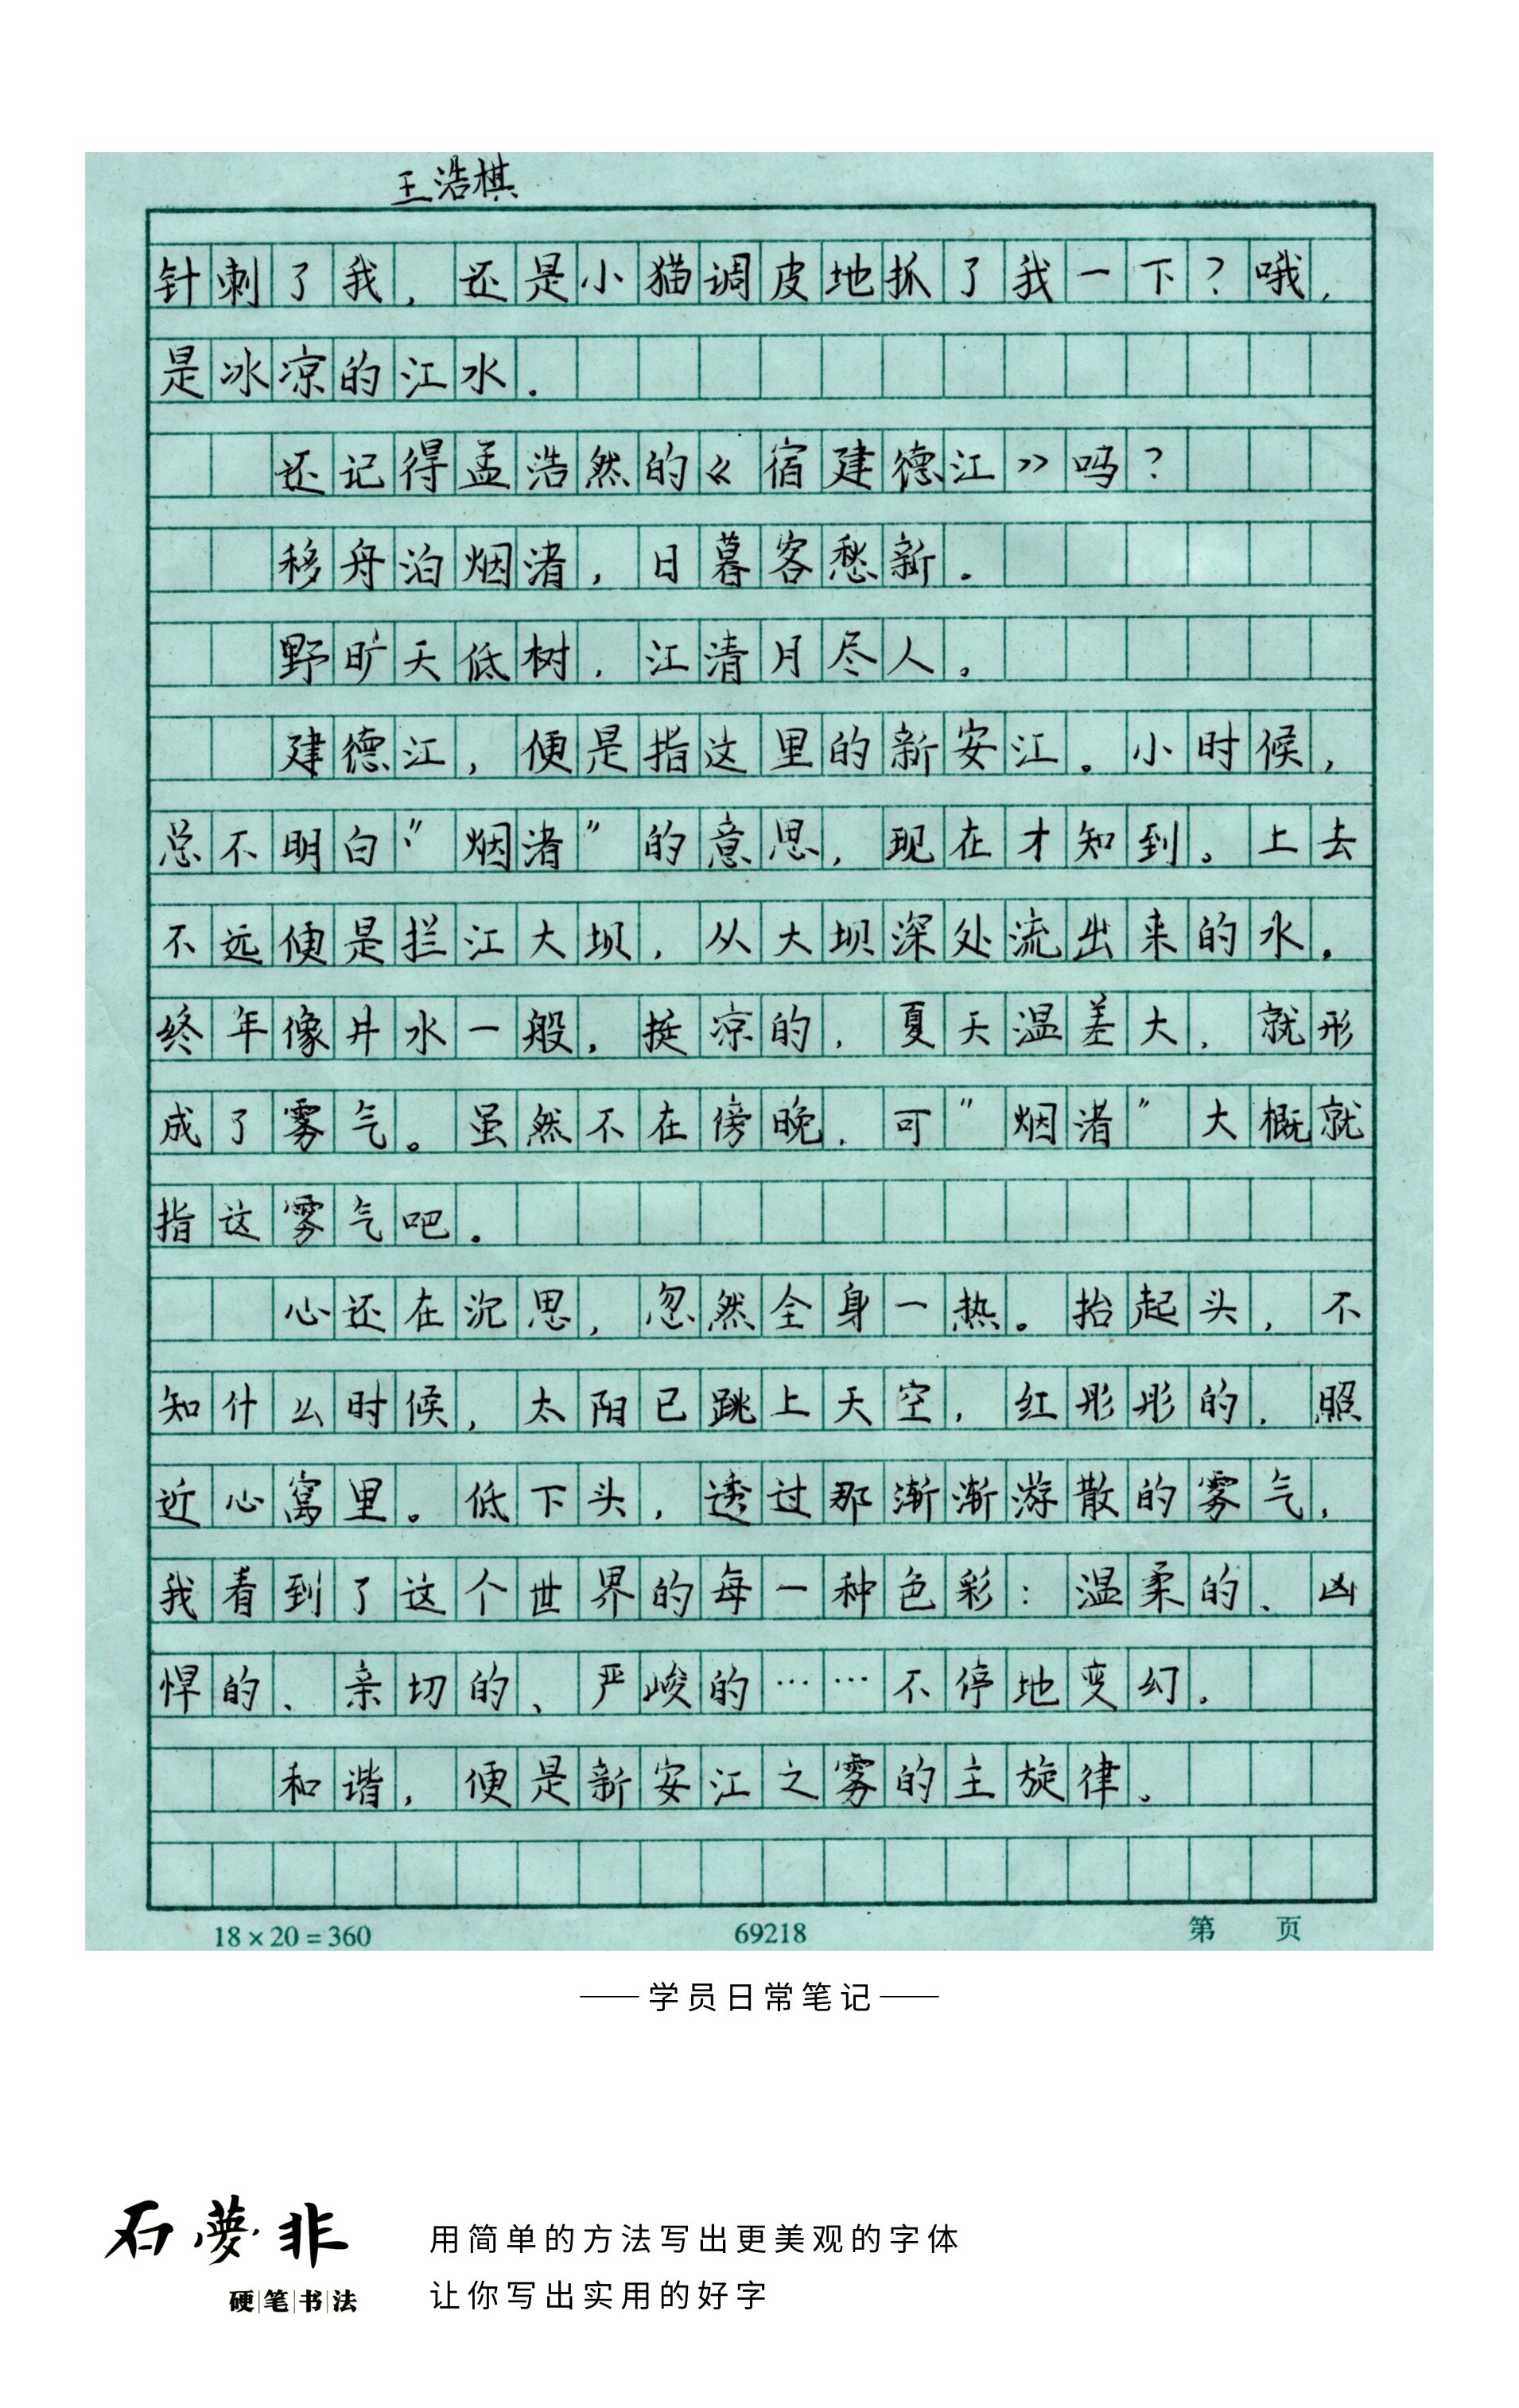 王浩棋
针刺了我，还是小猫调皮地抓了我一下？哦，
是冰凉的江水。
还记得孟浩然的《宿建德江》吗？
移舟泊烟渚，日暮客愁新。
野旷天低树，江清月尽人。
建德江，便是指这里的新安江。小时候，
总不明白“烟渚”的意思，现在才知到。上去
不远便是拦江大坝，从大坝深处流出来的水，
终年像井水一般，挺凉的，夏天温差大，就形
成了雾气。虽然不在傍晚，可“烟渚”大概就
指这雾气吧。
心还在沉思，忽然全身一热。抬起头，不
知什么时候，太阳已跳上天空，红彤彤的，照
近心窝里。低下头，透过那渐渐游散的雾气，
我看到了这个世界的每一种色彩：温柔的、凶
悍的、亲切的、严峻的……不停地变幻。
和谐，便是新安江之雾的主旋律。
18×20=360 69218 第 页
学员日常笔记
石夢非
硬笔书法
用简单的方法写出更美观的字体
让你写出实用的好字